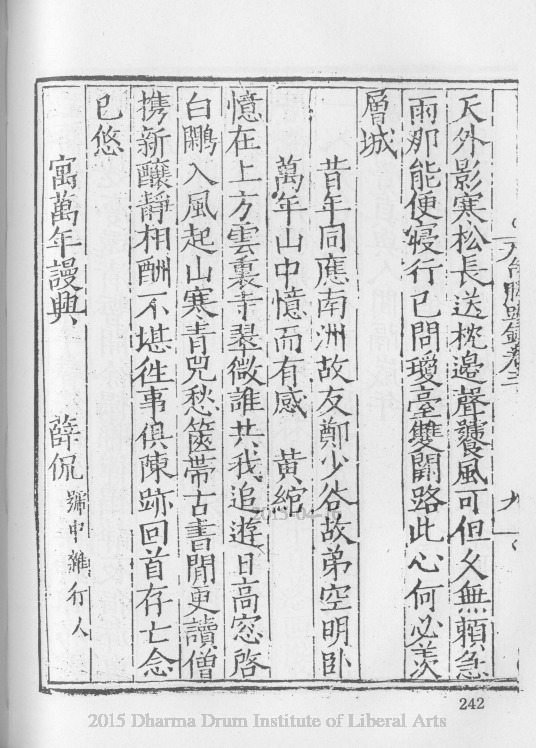 天台勝蹟錄卷二
九
天外影寒松長送枕邊聲饕風可但久無賴急
雨那能便寢行已問瓊臺雙闕路此心何必羨
層城
昔年同應南洲故友鄭少谷故弟空明卧
萬年山中憶而有感 黃綰
憶在上方雲裏寺翠微誰共我追遊日高窓啓
白鷴入風起山寒青兕愁篋帶古書閒更讀僧
携新釀靜相酬不堪徃事俱陳跡回首存亡念
已悠
寓萬年謾興 薛侃 號中離行人
242
2015 Dharma Drum Institute of Liberal Arts